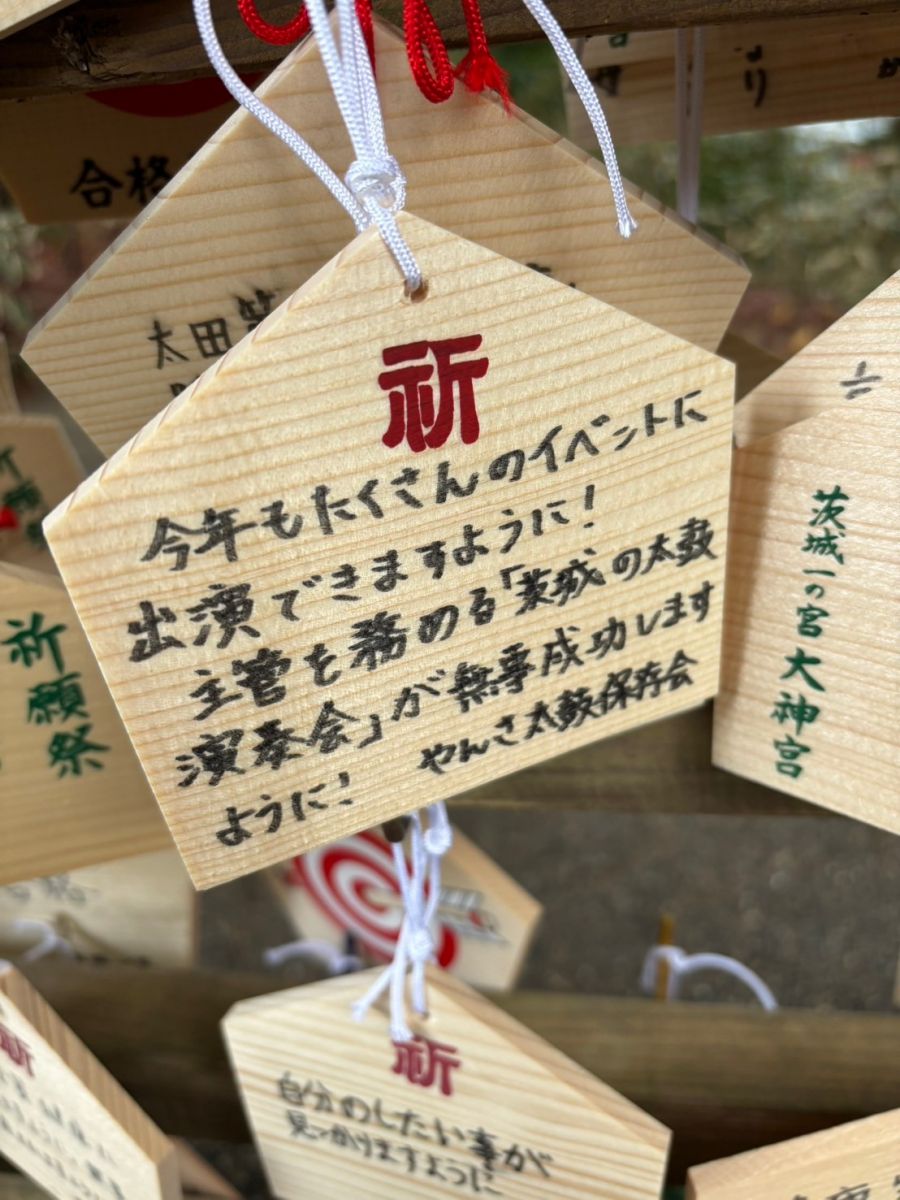 合格
太田
祈
今年もたくさんのイベントに
出演できますように！
主管を務める「茨城の太鼓
演奏会」が無事成功します
ように！ やんさ太鼓保存会
祈願祭
茨城一の宮 大神宮
祈
自分のしたい事が
見つかりますように